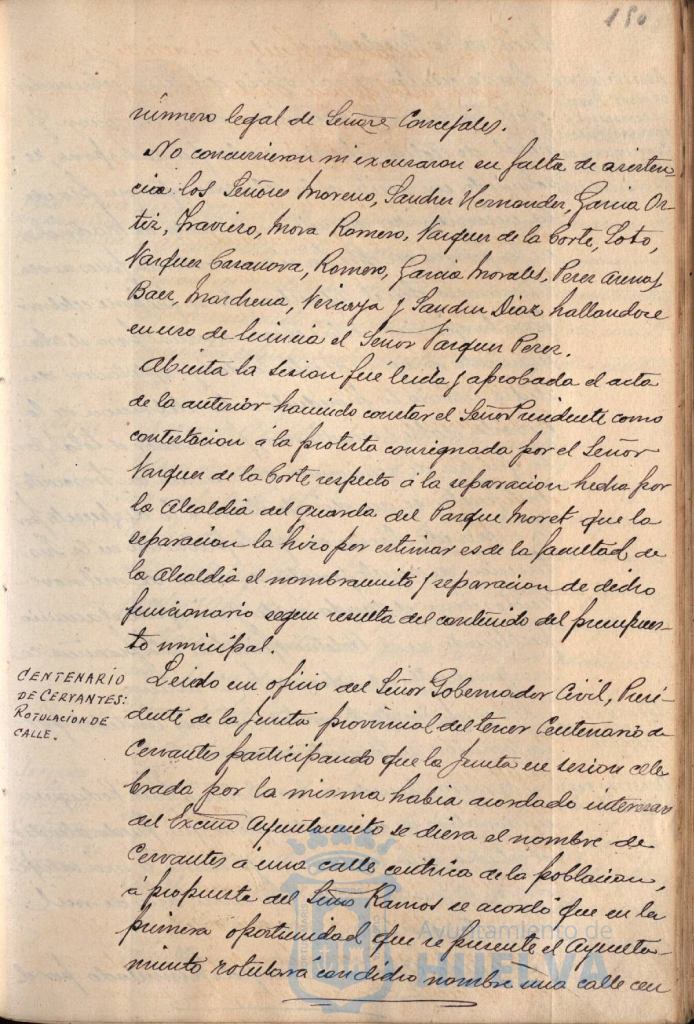 180
número legal de Señores Concejales.
No concurrieron ni excusaron su falta de asisten-
cia los Señores Moreno, Sanchez Hernandez, Garcia Or-
tiz, Traviero, Mora Romero, Vazquez de la Corte, Soto,
Vazquez Casanova, Romero, Garcia Morales, Perez Arenas,
Baez, Marchena, Vizcaya y Sanchez Diaz hallandose
en uso de licencia el Señor Vazquez Perez.
Abierta la sesion fué leida y aprobada el acta
de la anterior haciendo constar el Señor Presidente como
contestacion á la protesta consignada por el Señor
Vazquez de la Corte respecto á la separacion hecha por
la Alcaldia del guarda del Parque Moret que la
separacion la hizo por estimar es de la facultad de
la Alcaldia el nombramiento y separacion de dicho
funcionario segun resulta del contenido del presupues-
to municipal.
CENTENARIO
DE CERVANTES:
ROTULACION DE
CALLE.
Leido un oficio del Señor Gobernador Civil, Presi-
dente de la Junta provincial del tercer Centenario de
Cervantes participando que la Junta en sesion cele
brada por la misma habia acordado interesar
del Excmo Ayuntamiento se diera el nombre de
Cervantes á una calle centrica de la poblacion,
á propuesta del Señor Ramos se acordó que en la
primera oportunidad que se presente el Ayunta-
miento rotulará con dicho nombre una calle cen
Ayuntamiento de
HUELVA